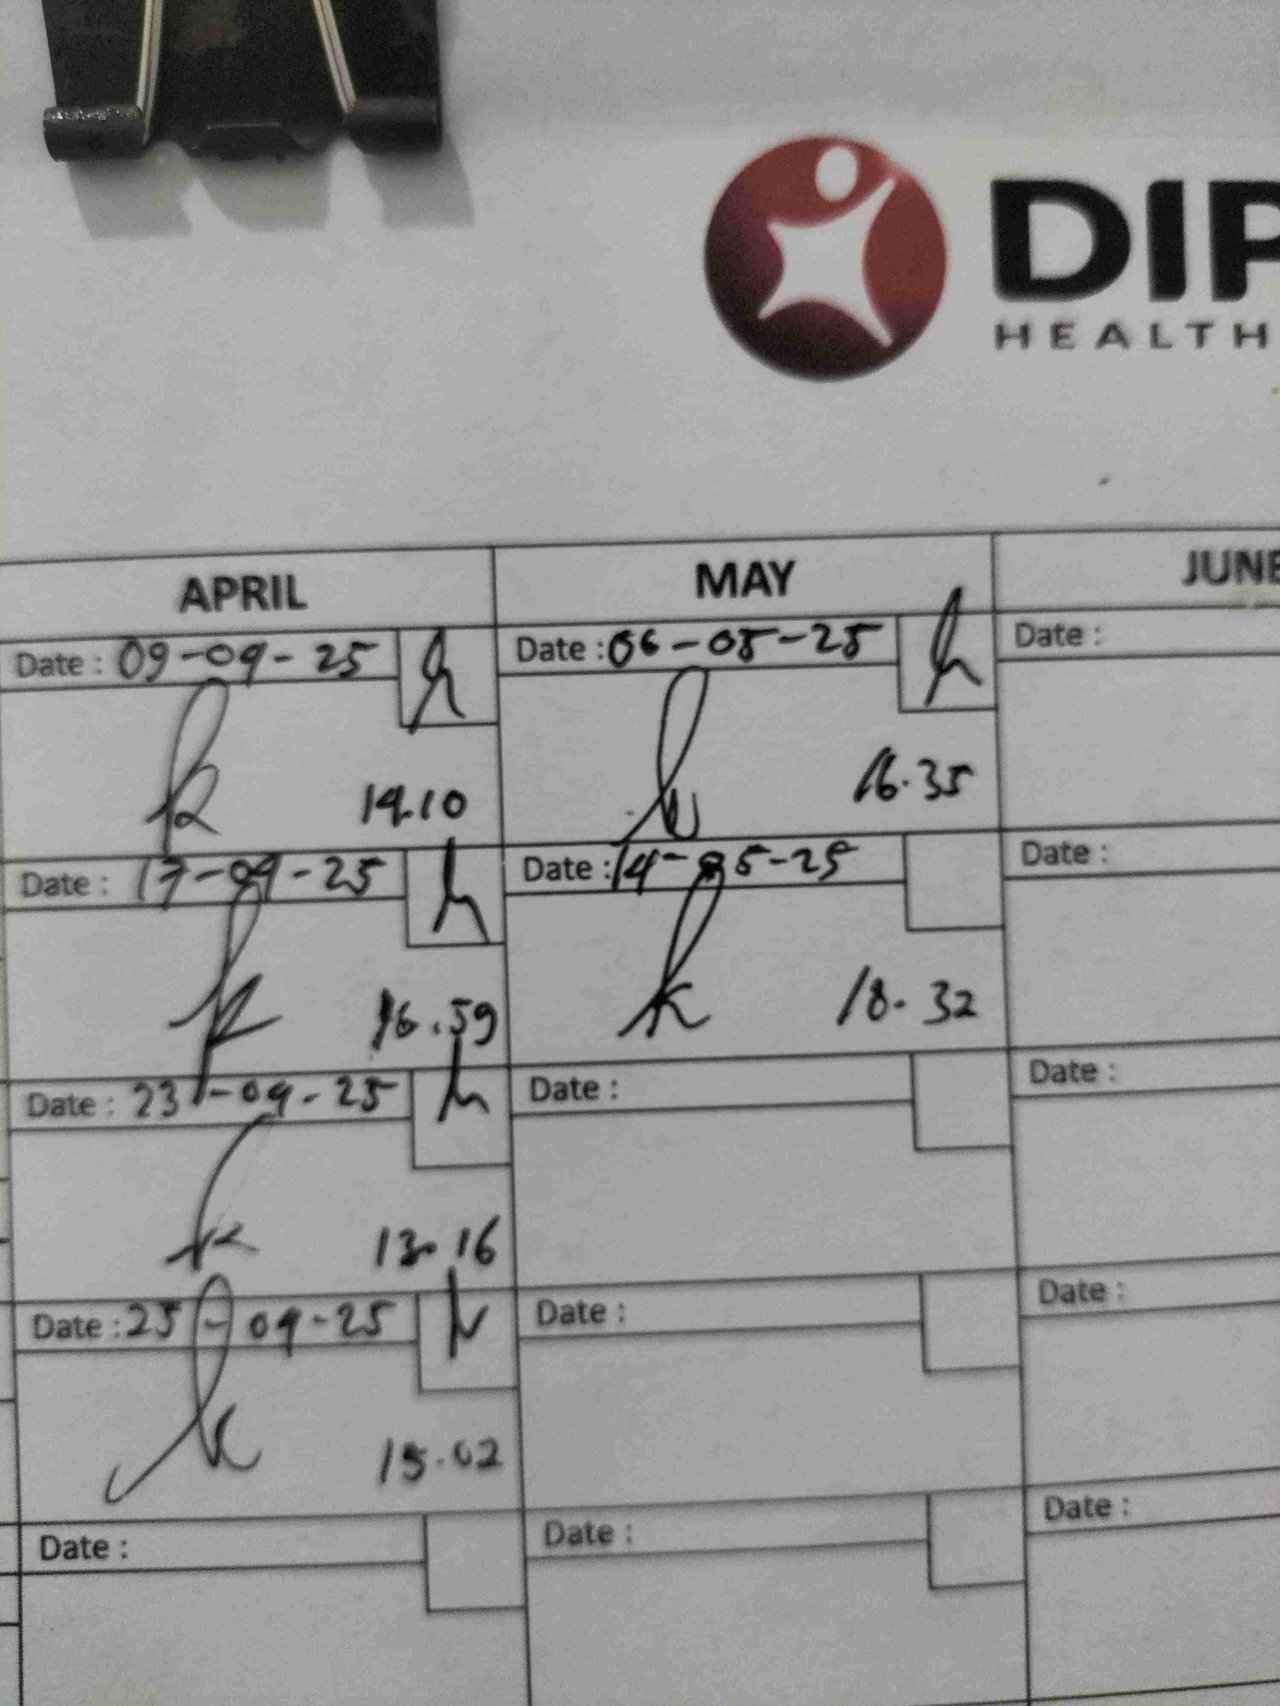 DIP
HEALTH
APRIL
MAY
JUNE
Date : 09-04-25
Date : 06-05-25
Date :
14.10
16.35
Date : 17-04-25
Date : 14-05-25
Date :
16.59
18.32
Date : 23-04-25
Date :
Date :
13.16
Date : 25-04-25
Date :
Date :
15.02
Date :
Date :
Date :